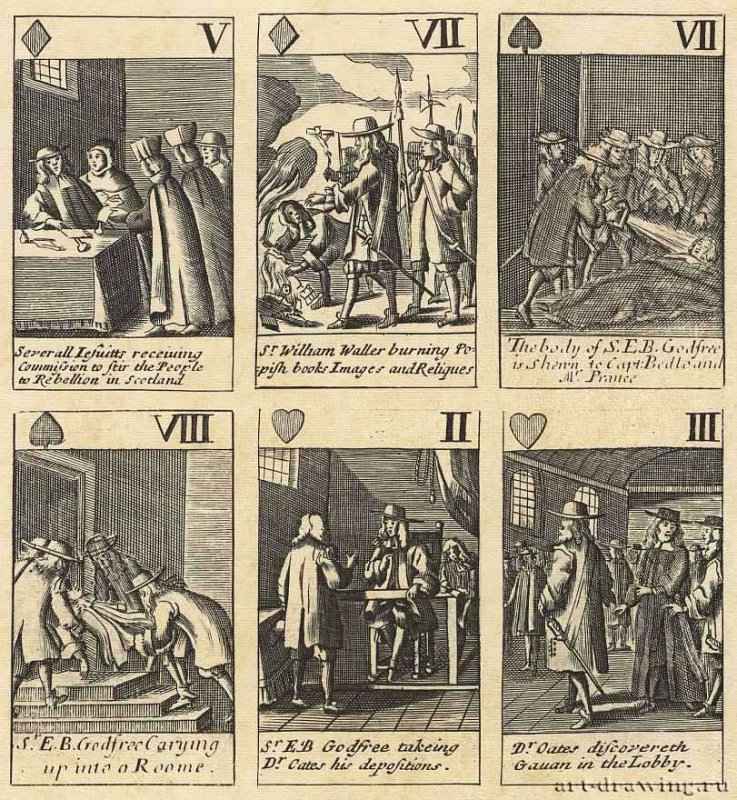 V
Severall Iesuitts receiving
Commission to stir the People
to Rebellion in Scotland
VII
Sr. William Waller burning Po-
pish books Images and Reliques
VII
The body of S.E.B. Godfree
is Shewn to Capt: Bedlo and
Mr. Prance
VIII
Sr. E.B. Godfree Carying
up into a Roome.
II
Sr. E.B Godfree takeing
Dr. Oates his depositions.
III
Dr. Oates discovereth
Gauan in the Lobby.
art-drawing.ru